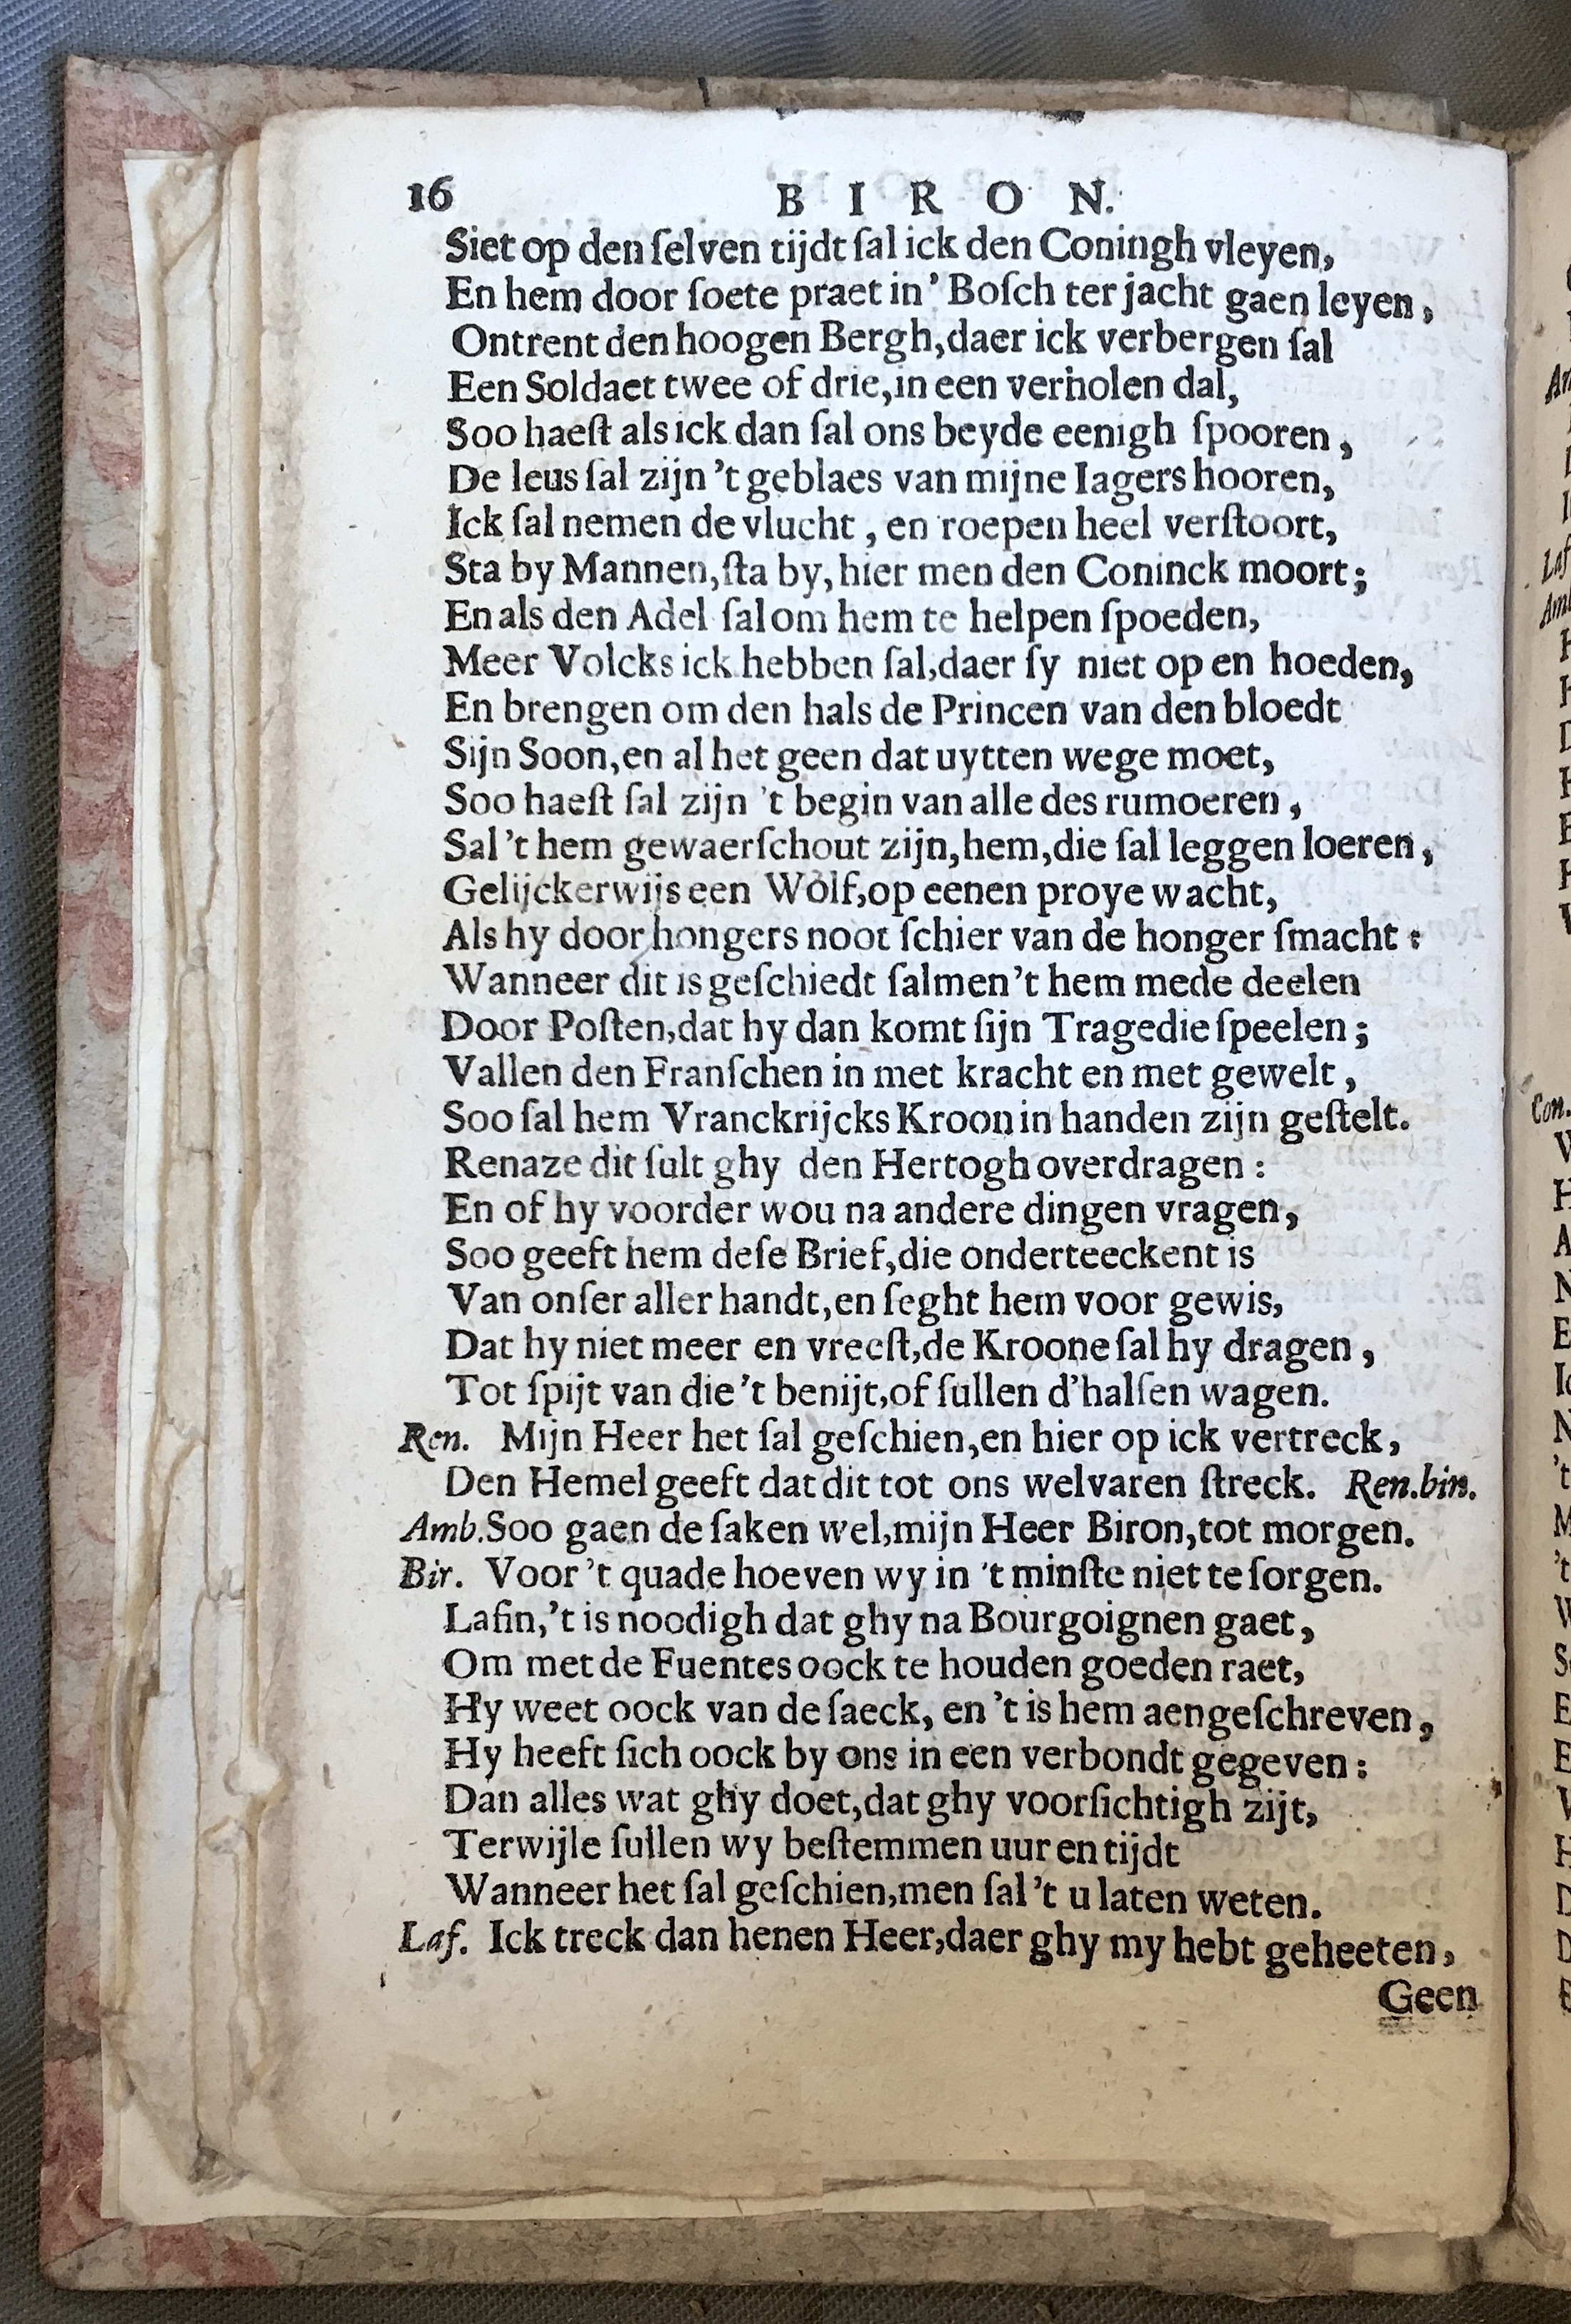 16 BIRON.
Siet op den ſelven tijdt ſal ick den Coningh vleyen,
En hem door ſoete praet in' Boſch ter jacht gaen leyen,
Ontrent den hoogen Bergh, daer ick verbergen ſal
Een Soldaet twee of drie, in een verholen dal,
Soo haeſt als ick dan ſal ons beyde eenigh ſpooren,
De leus ſal zijn 't geblaes van mijne Iagers hooren,
Ick ſal nemen de vlucht, en roepen heel verſtoort,
Sta by Mannen, ſta by, hier men den Coninck moort;
En als den Adel ſal om hem te helpen ſpoeden,
Meer Volcks ick hebben ſal, daer ſy niet op en hoeden,
En brengen om den hals de Princen van den bloedt
Sijn Soon, en al het geen dat uytten wege moet,
Soo haeſt ſal zijn 't begin van alle des rumoeren,
Sal 't hem gewaerſchout zijn, hem, die ſal leggen loeren,
Gelijckerwijs een Wolf, op eenen proye wacht,
Als hy door hongers noot ſchier van de honger ſmacht:
Wanneer dit is geſchiedt ſalmen 't hem mede deelen
Door Poſten, dat hy dan komt ſijn Tragedie ſpeelen;
Vallen den Franſchen in met kracht en met gewelt,
Soo ſal hem Vranckrijcks Kroon in handen zijn geſtelt.
Renaze dit ſult ghy den Hertogh overdragen:
En of hy voorder wou na andere dingen vragen,
Soo geeft hem deſe Brief, die onderteeckent is
Van onſer aller handt, en ſeght hem voor gewis,
Dat hy niet meer en vreeſt, de Kroone ſal hy dragen,
Tot ſpijt van die 't benijt, of ſullen d'halſen wagen.
Ren. Mijn Heer het ſal geſchien, en hier op ick vertreck,
Den Hemel geeft dat dit tot ons welvaren ſtreck. Ren. bin.
Amb. Soo gaen de ſaken wel, mijn Heer Biron, tot morgen.
Bir. Voor 't quade hoeven wy in 't minſte niet te ſorgen.
Lafin, 't is noodigh dat ghy na Bourgoignen gaet,
Om met de Fuentes oock te houden goeden raet,
Hy weet oock van de ſaeck, en 't is hem aengeſchreven,
Hy heeft ſich oock by ons in een verbondt gegeven:
Dan alles wat ghy doet, dat ghy voorſichtigh zijt,
Terwijle ſullen wy beſtemmen uur en tijdt
Wanneer het ſal geſchien, men ſal 't u laten weten.
Laf. Ick treck dan henen Heer, daer ghy my hebt geheeten,
Geen